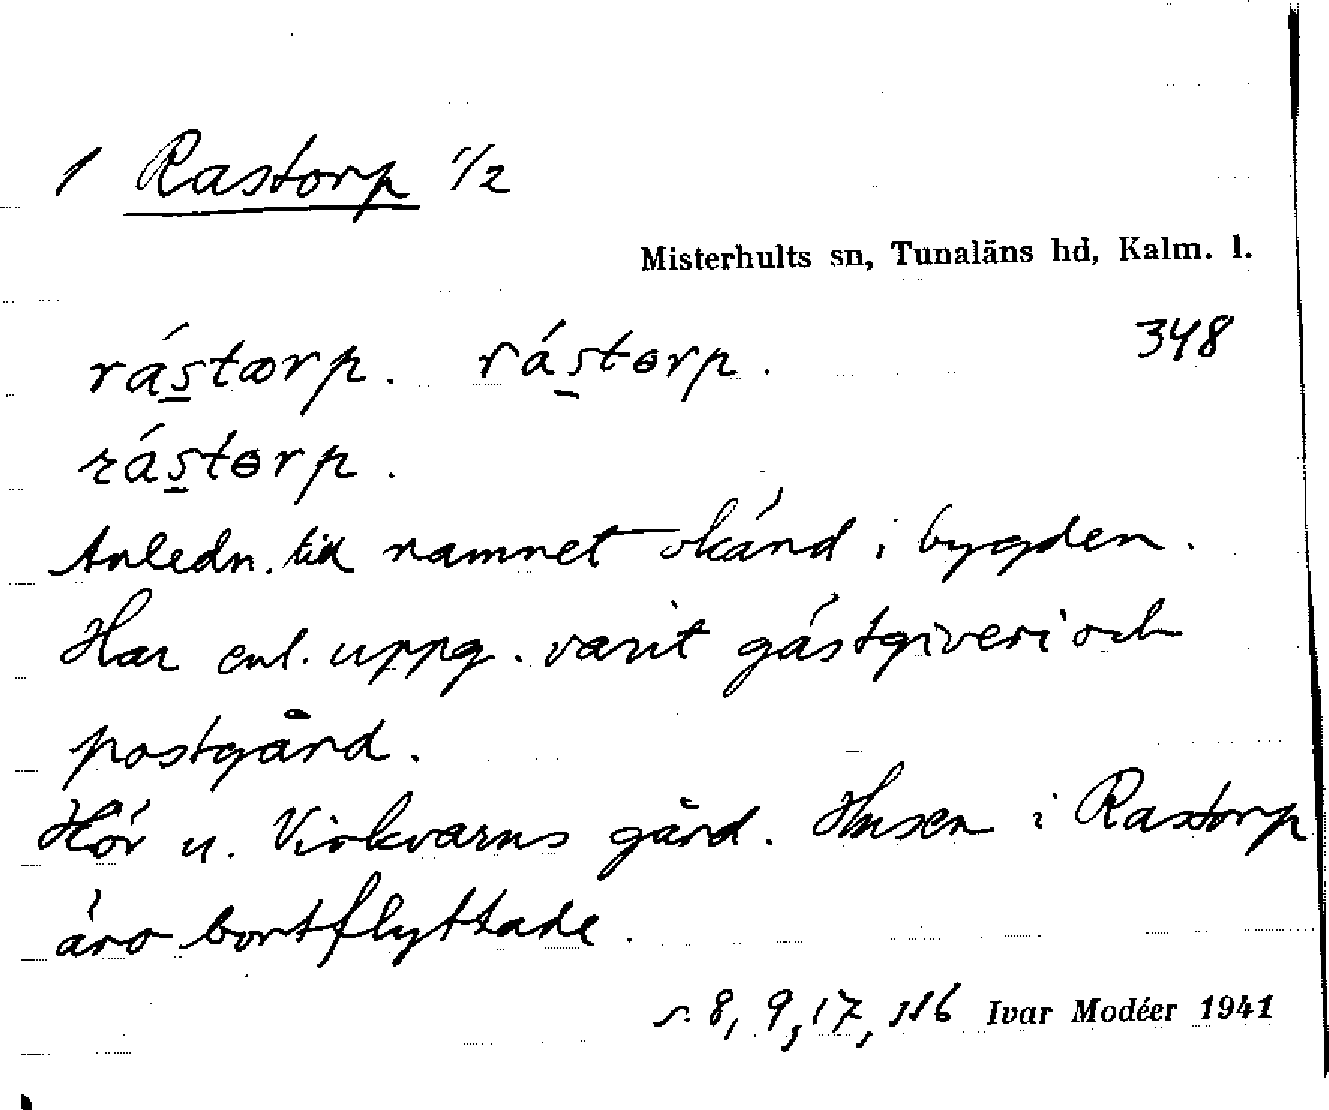 1 Rastorp 1/2
Misterhults sn, Tunaläns hd, Kalm. l.
rástærp. rástɵrp. 348
rástɵrp.
Anledn. till namnet okänd i bygden.
Har enl. uppg. varit gästgiveri och
postgård.
Hör u. Virkvarns gård. Husen i Rastorp
äro bortflyttade.
s. 8, 9, 17, 116 Ivar Modéer 1941